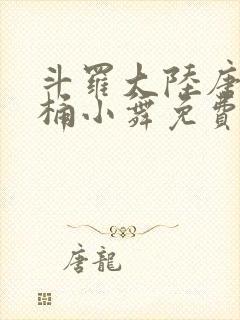 斗羅大陸唐
桶小舞免費
唐龍